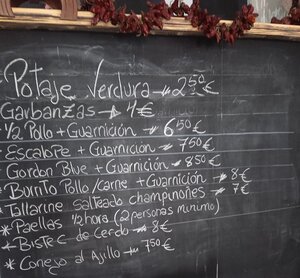 Potaje Verdura → 2'50€
Garbanzas → 4€
1/2 Pollo + Guarnición → 6'50€
Escalope + Guarnición → 7'50€
Gordon Blue + Guarnición → 8'50€
* Burrito Pollo/carne + Guarnición → 8€
* Tallarine Salteado champiñones → 7€
* Paellas 1/2 hora (2 personas minimo)
* Bistec de Cerdo → 8€
* Conejo al Ajillo → 7'50€